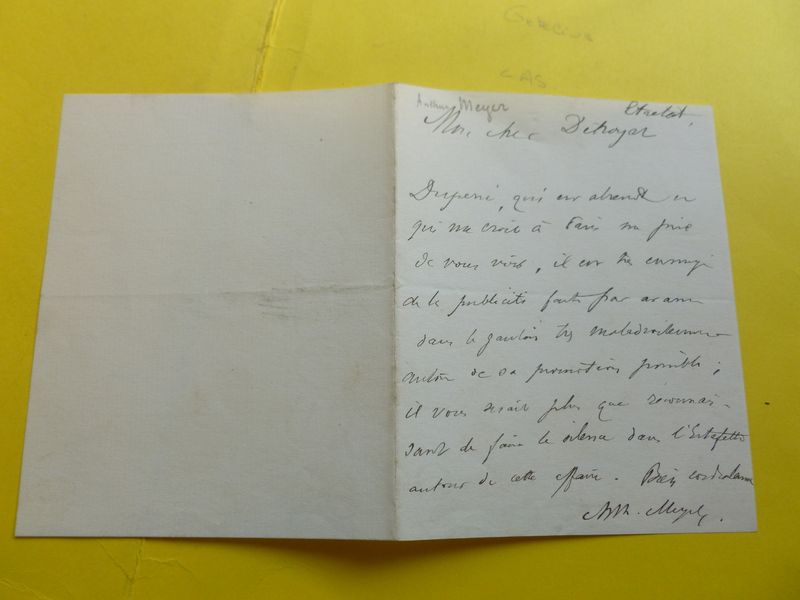 CAS
Arthur Meyer
Etretat,
Mon cher Detroyat
Duperré, qui est absent et
qui me croit à Paris me prie
de vous voir, il est très ennuyé
de la publicité faite par avance
dans le Gaulois très maladroitement
autour de sa promotion possible ;
il vous serait plus que reconnais-
sant de faire le silence dans l'Estafette
autour de cette affaire. Bien cordialement
Arth. Meyer.